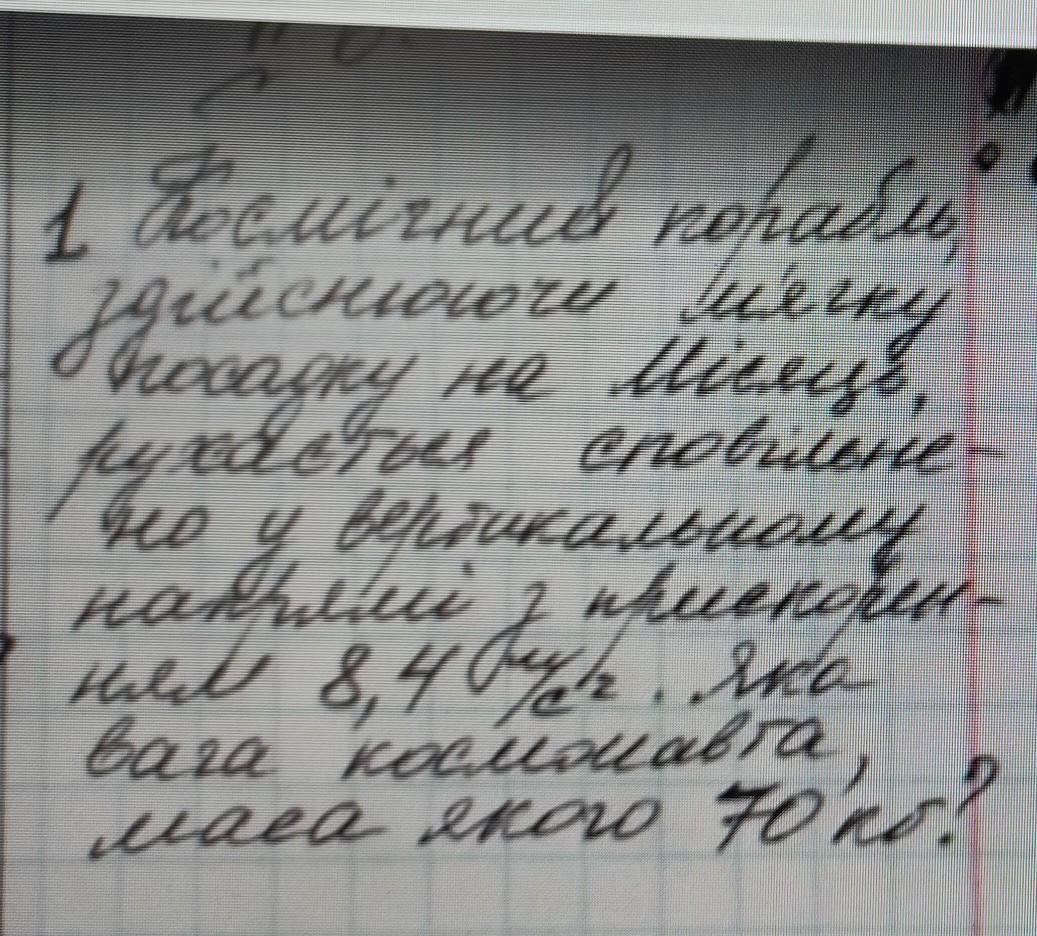 1 Космічний корабль,
здійснюючи м'яку
посадку на Місяць,
рухається сповільне-
но у вертикальному
напрямі з прискорен-
ням 8,4 м/с². Яка
вага космонавта,
маса якого 70 кг?